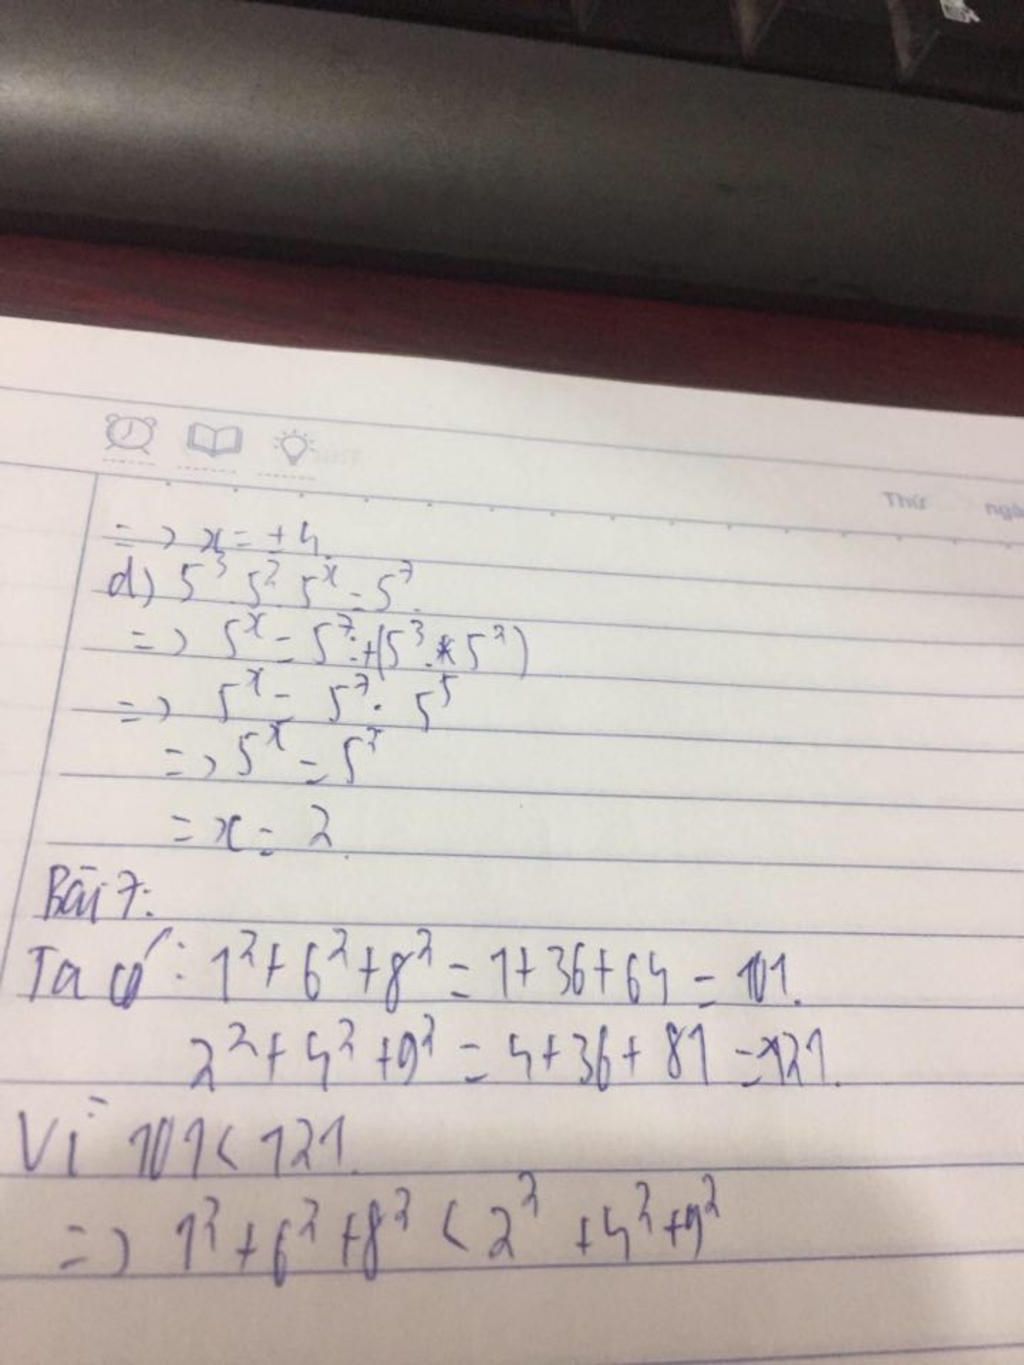 Thứ ngà
=> x = ± 4
d) 5³ 5² 5ˣ = 5⁷.
=> 5ˣ = 5⁷ : (5³ . 5²)
=> 5ˣ = 5⁷ . 5⁵
=> 5ˣ = 5²
= x = 2.
Bài 7:
Ta có: 1² + 6² + 8² = 1 + 36 + 64 = 101.
2² + 4² + 9² = 4 + 36 + 81 = 121.
Vì 101 < 121.
=> 1² + 6² + 8² < 2² + 4² + 9²